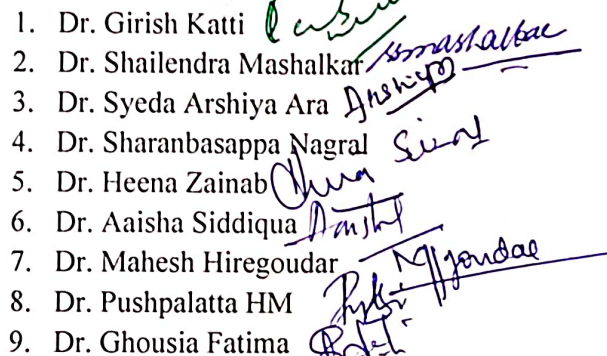 1. Dr. Girish Katti
2. Dr. Shailendra Mashalkar ssmashalkar
3. Dr. Syeda Arshiya Ara Arshiya
4. Dr. Sharanbasappa Nagral
5. Dr. Heena Zainab
6. Dr. Aaisha Siddiqua
7. Dr. Mahesh Hiregoudar
8. Dr. Pushpalatta HM
9. Dr. Ghousia Fatima